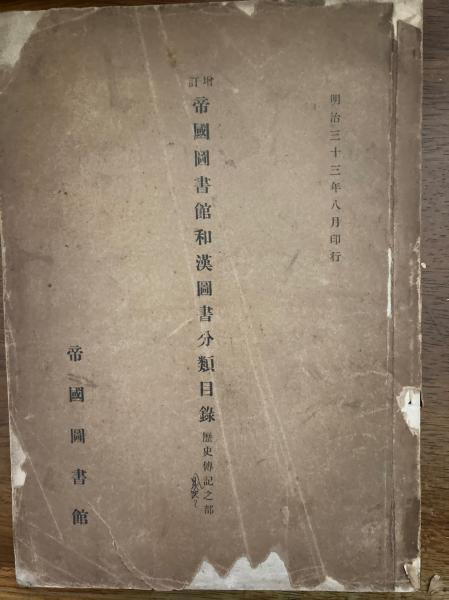 明治三十三年八月印行
增訂帝國圖書館和漢圖書分類目錄歷史傳記之部
帝國圖書館